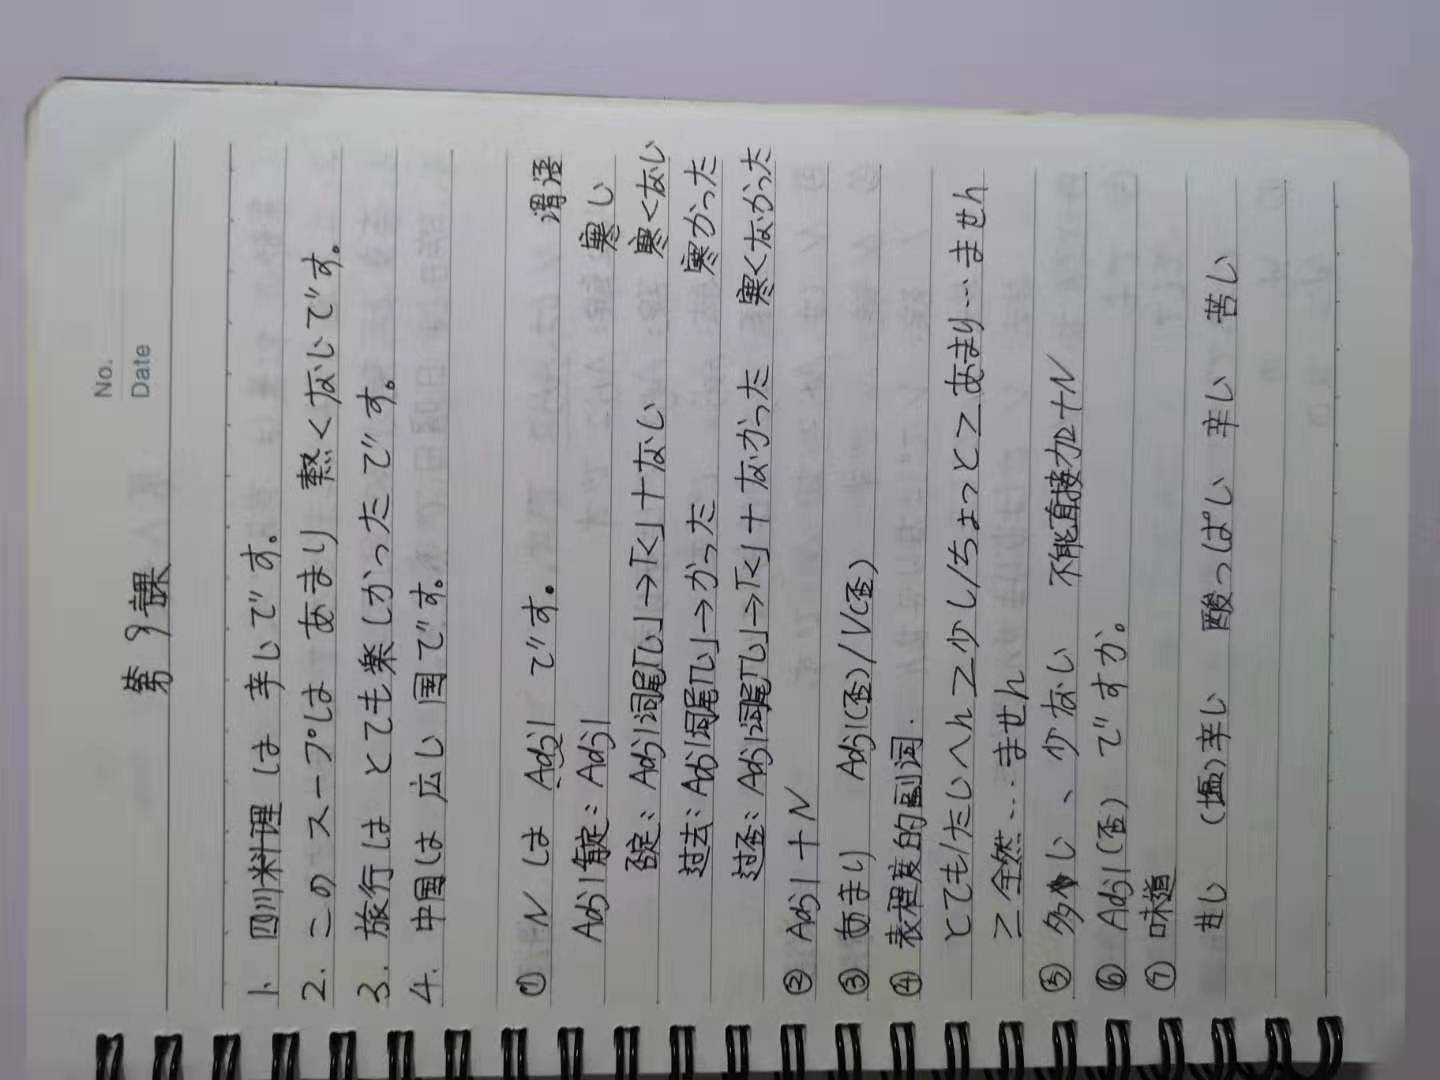 No.
Date
第9課
1. 四川料理は 辛いです。
2. このスープは あまり 熱くないです。
3. 旅行は とても楽しかったです。
4. 中国は 広い国です。
① Nは AdjⅠ です。 谓语
AdjⅠ肯定: AdjⅠ 寒い
否定: AdjⅠ词尾「い」→「く」+ない 寒くない
过去: AdjⅠ词尾「い」→かった 寒かった
过否: AdjⅠ词尾「い」→「く」+なかった 寒くなかった
② AdjⅠ+N
③ あまり AdjⅠ(否)/V(否)
④ 表程度的副词.
とても/たいへん≥少し/ちょっと≥あまり…ません
≥全然…ません
⑤ 多い、少ない 不能直接加+N
⑥ AdjⅠ(否) ですか。
⑦ 味道
甘い (塩)辛い 酸っぱい 辛い 苦い